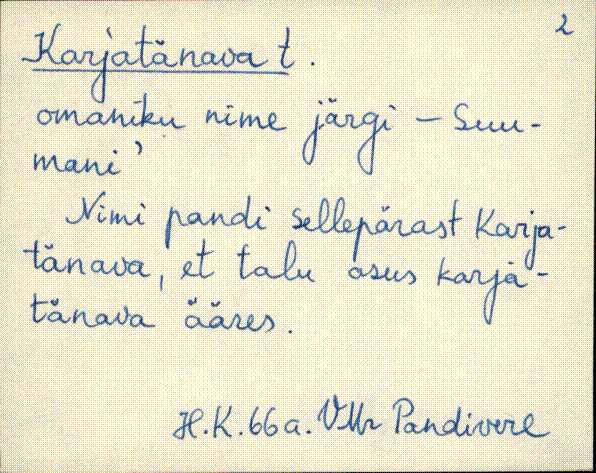 2
Karjatänava t.
omaniku nime järgi - Suu-
mani'
Nimi pandi sellepärast Karja-
tänava, et talu asus karja-
tänava ääres.
H.K. 66 a. VMr Pandivere